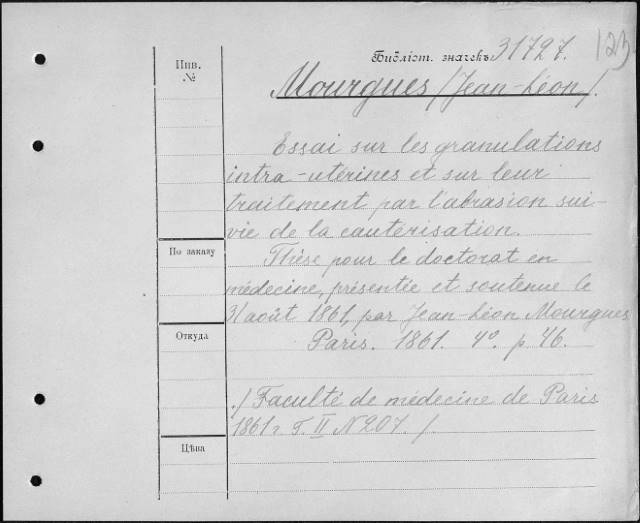 123
Библіот. значекъ 31727.
Инв.
№
Mourgues /Jean-Léon/.
Essai sur les granulations
intra-utérines et sur leur
traitement par l'abrasion sui-
vie de la cautérisation.
По заказу
Thèse pour le doctorat en
médecine, présentée et soutenue le
31 août 1861, par Jean-Léon Mourgues
Откуда
Paris. 1861. 4º. p. 46.
/Faculté de médecine de Paris
1861 г. T. II N 207./
Цѣна